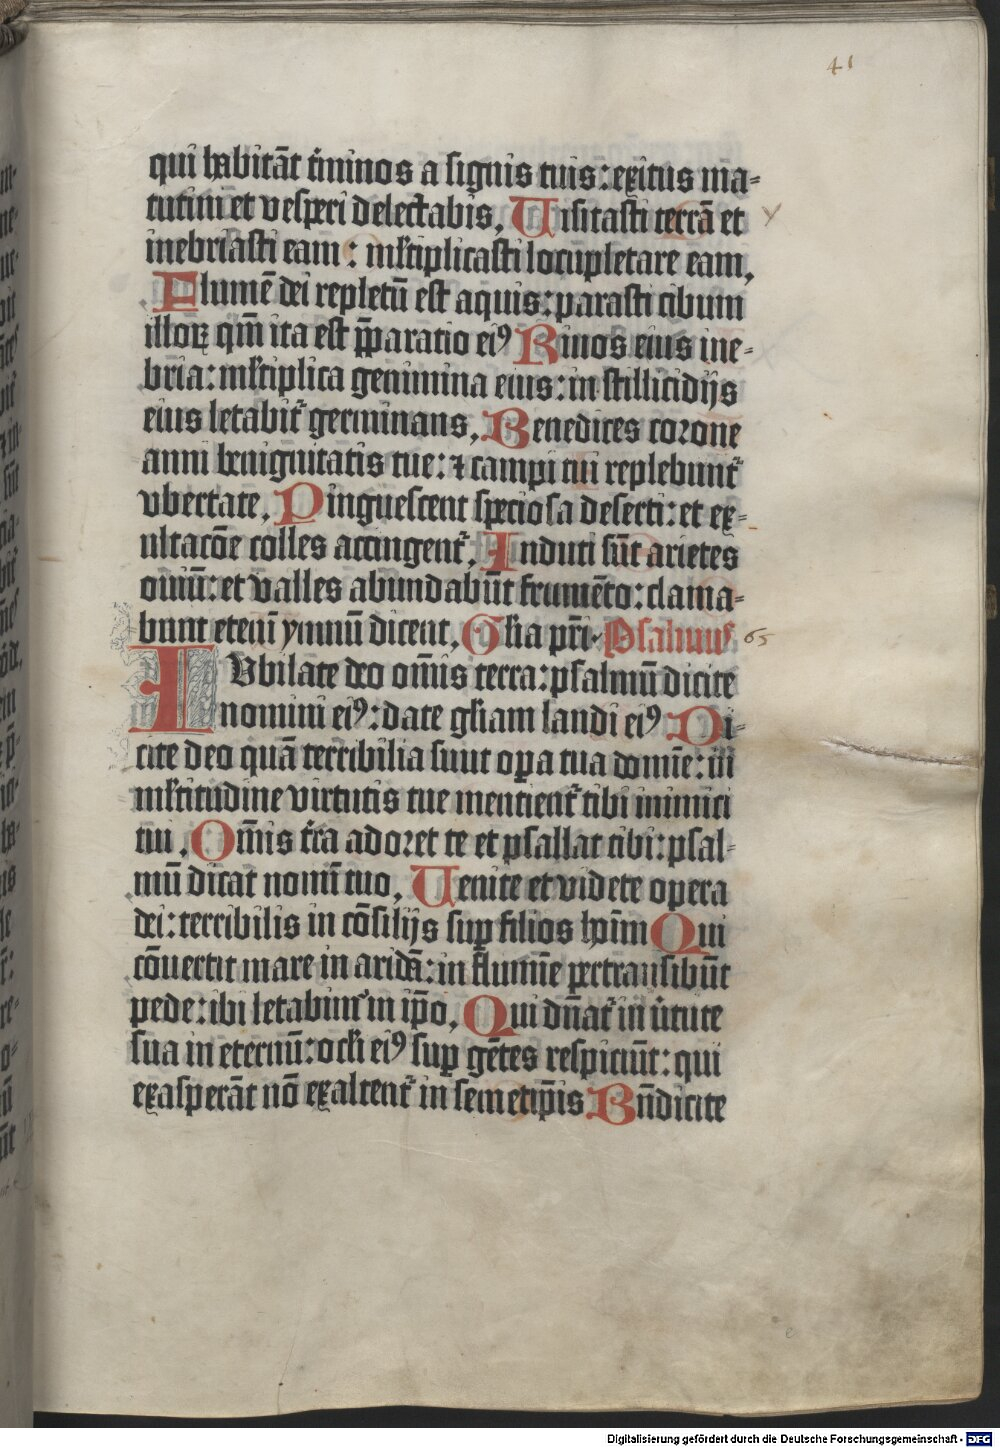 41
qui habitāt t͛minos a signis tuis: exitus ma-
tutini et vesperi delectabis, Uisitasti terrā et
inebriasti eam: ml̓tiplicasti locupletare eam,
Flumē dei repletū est aquis: parasti cibum
illoꝝ qm̄ ita est p̄paratio eiꝰ Riuos eius ine-
bria: ml̓tiplica genimina eius: in stillicidijs
eius letabit᷑ germinans, Benedices corone
anni benignitatis tue: ⁊ campi tui replebunt᷑
vbertate, Pinguescent speciosa deserti: et ex-
ultacōe colles accingent᷑, Induti sūt arietes
ouiū: et valles abundabūt frumēto: clama-
bunt etenī ymnū dicent, Gl̓ia pr̄i Psalmus 65
IUbilate deo om̄is terra: psalmū dicite
nomini eiꝰ: date gl̓iam laudi eiꝰ Di-
cite deo quā terribilia sunt oꝑa tua domīe: in
ml̓titudine virtutis tue mentient᷑ tibi inimici
tui, Om̄is t͛ra adoret te et psallat tibi: psal-
mū dicat nomī tuo, Uenite et videte opera
dei: terribilis in cōsilijs suꝑ filios hoīm Qui
cōuertit mare in aridā: in flumīe pertransibūt
pede: ibi letabim᷒ in ip̄o, Qui dn̄at᷑ in v͛tute
sua in eternū: ocl̓i eiꝰ suꝑ gētes respiciūt: qui
exasperāt nō exaltent᷑ in semetip̄is Bn̄dicite
Digitalisierung gefördert durch die Deutsche Forschungsgemeinschaft - DFG